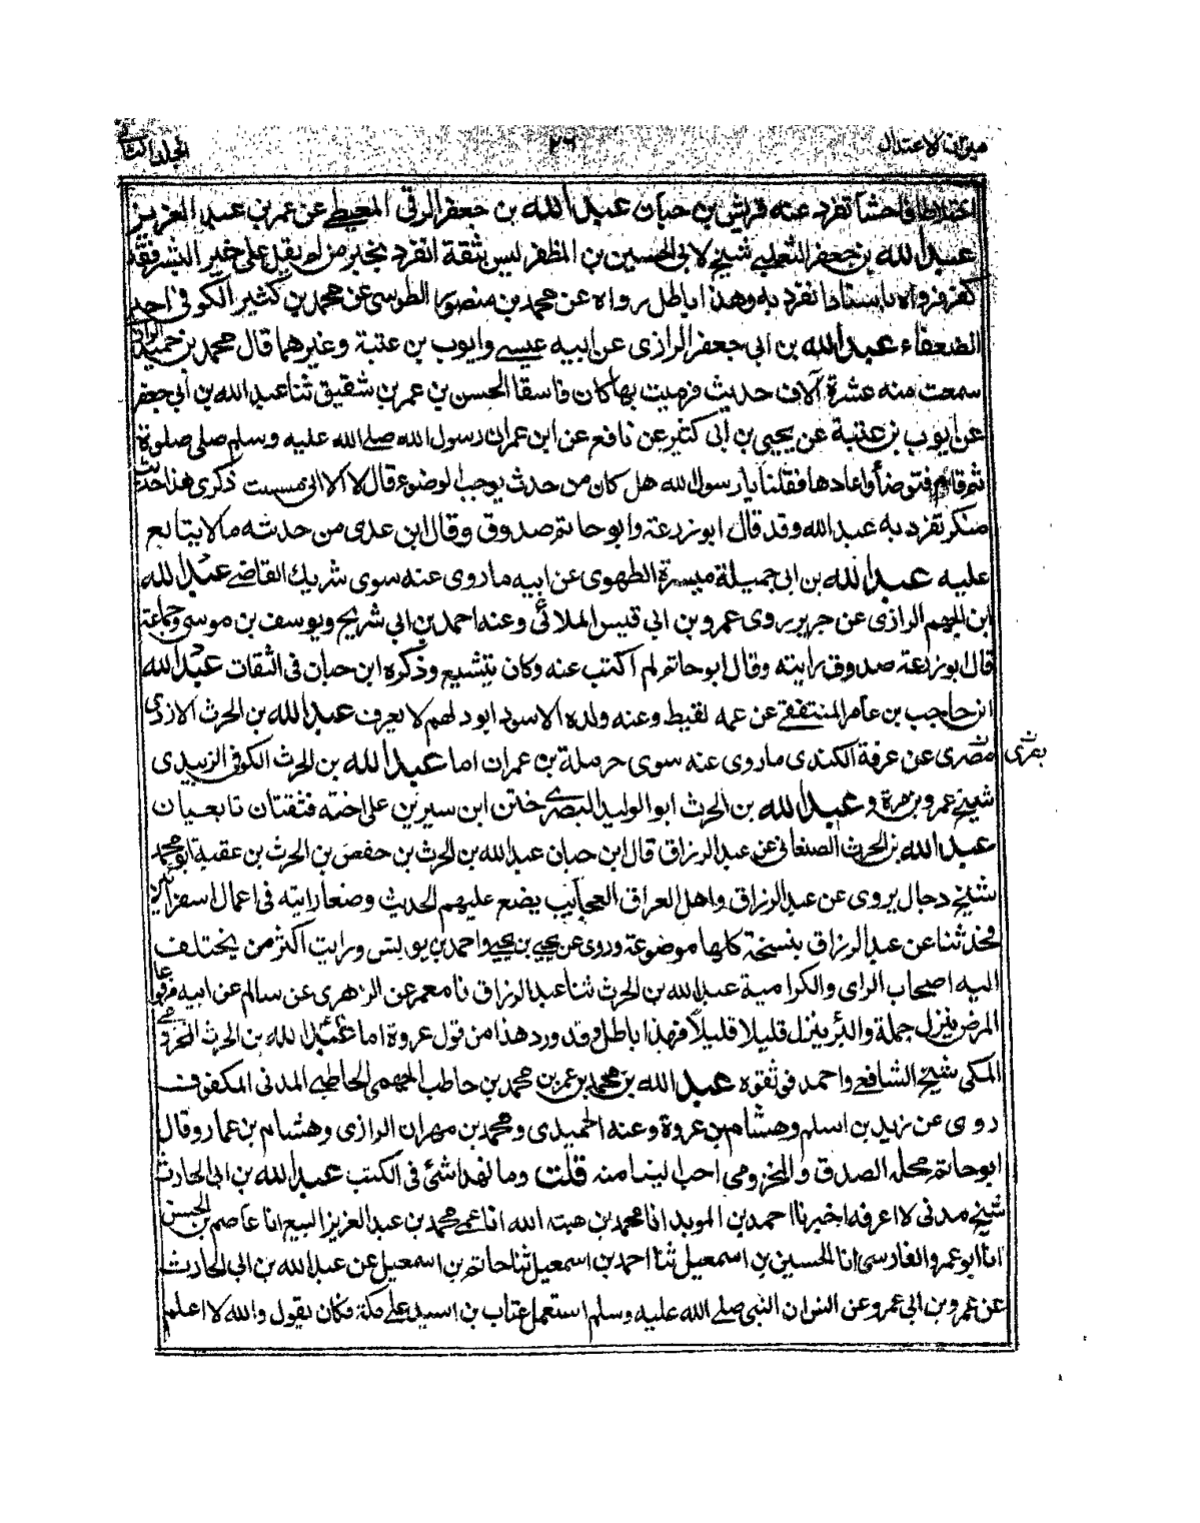 ميزان الاعتدال ٢٦ المجلد الثانى
اختلاطا فاحشا تفرد عنه قريش بن حبان عبد الله بن جعفر الرقى المعيطى عن عمر بن عبد العزيز
عبد الله بن جعفر الثعلبى شيخ لابى الحسين بن المظفر ليس بثقة انفرد بخبر من لم يقل على خير البشر فقد
كفر فرواه باسناد انفرد به وهذا باطل رواه عن محمد بن منصور الطوسى عن محمد بن كثير الكوفى احد
الضعفاء عبد الله بن ابى جعفر الرازى عن ابيه عيسى وايوب بن عتبة وغيرهما قال محمد بن حميد الرازى
سمعت منه عشرة آلاف حديث فرميت بها كان فاسقا الحسن بن عمر بن شقيق ثنا عبد الله بن أبى جعفر
عن ايوب بن عتبة عن يحيى بن ابى كثير عن نافع عن ابن عمر ان رسول الله صلى الله عليه وسلم صلى صلوة
ثم قام فتوضأ واعادها فقلنا يا رسول الله هل كان من حدث يوجب الوضوء قال لا الا انى مسست ذكرى هذا حديث
منكر تفرد به عبد الله وقد قال ابو زرعة وابو حاتم صدوق وقال ابن عدى من حدثه ما لا يتابع
عليه عبد الله بن ابى جميلة ميسرة الطهوى عن ابيه ما روى عنه سوى شريك القاضى عبد الله
ابن الجهم الرازى عن جرير روى عمرو بن ابى قيس الملائى وعنه احمد بن ابى شريح ويوسف بن موسى وجماعة
قال ابو زرعة صدوق رايته وقال ابو حاتم لم اكتب عنه وكان يتشيع وذكره ابن حبان فى الثقات عبد الله
ابن حاجب بن عامر المنتفقى عن عمه لقيط وعنه ولده الاسود ابو دلهم لا يعرف عبد الله بن الحرث الازدى
مصرى عن عرفة الكندى ما روى عنه سوى حرملة بن عمران اما عبد الله بن الحرث الكوفى الزبيدى
بصرى
شيخ عمرو بن مرة وعبد الله بن الحرث ابو الوليد البصرى ختن ابن سيرين على اخته فثقتان تابعيان
عبد الله بن الحرث الصنعانى عن عبد الرزاق قال ابن حبان عبد الله بن الحرث بن حفص بن الحرث بن عقبة ابو محمد
شيخ دجال يروى عن عبد الرزاق واهل العراق العجايب يضع عليهم الحديث وضعا رايته فى اعمال اسفراين
فحدثنا عن عبد الرزاق بنسخة كلها موضوعة وروى عن يحيى بن يحيى واحمد بن يونس ورايت اكثر من يختلف
اليه اصحاب الراى والكرامية عبد الله بن الحرث ثنا عبد الرزاق نا معمر عن الزهرى عن سالم عن ابيه مرفوعا
المرض ينزل جملة والبرء ينزل قليلا قليلا فهذا باطل وقد ورد هذا من قول عروة اما عبد الله بن الحرث المخزومى
المكى شيخ الشافعى واحمد فى ثقوه عبد الله بن محمد بن عمر بن محمد بن حاطب الجهمى الحاطبى المدنى المكفوف
روى عن زيد بن اسلم وهشام بن عروة وعنه الحميدى ومحمد بن مهران الرازى وهشام بن عمار وقال
ابو حاتم محله الصدق والمخزومى احب الينا منه قلت وما لهذا شئ فى الكتب عبد الله بن ابى الحارث
شيخ مدنى لا اعرفه اخبرنا احمد بن المويد انا محمد بن هبته الله انا عمى محمد بن عبد العزيز البيع انا عاصم بن الحسن
انا ابو عمرو الفارسى انا الحسين بن اسمعيل ثنا احمد بن اسمعيل ثنا حاتم بن اسمعيل عن عبد الله بن ابى الحارث
عن عمرو بن ابى عمرو عن انس ان النبى صلى الله عليه وسلم استعمل عتاب بن اسيد على مكة فكان يقول والله لا اعلم